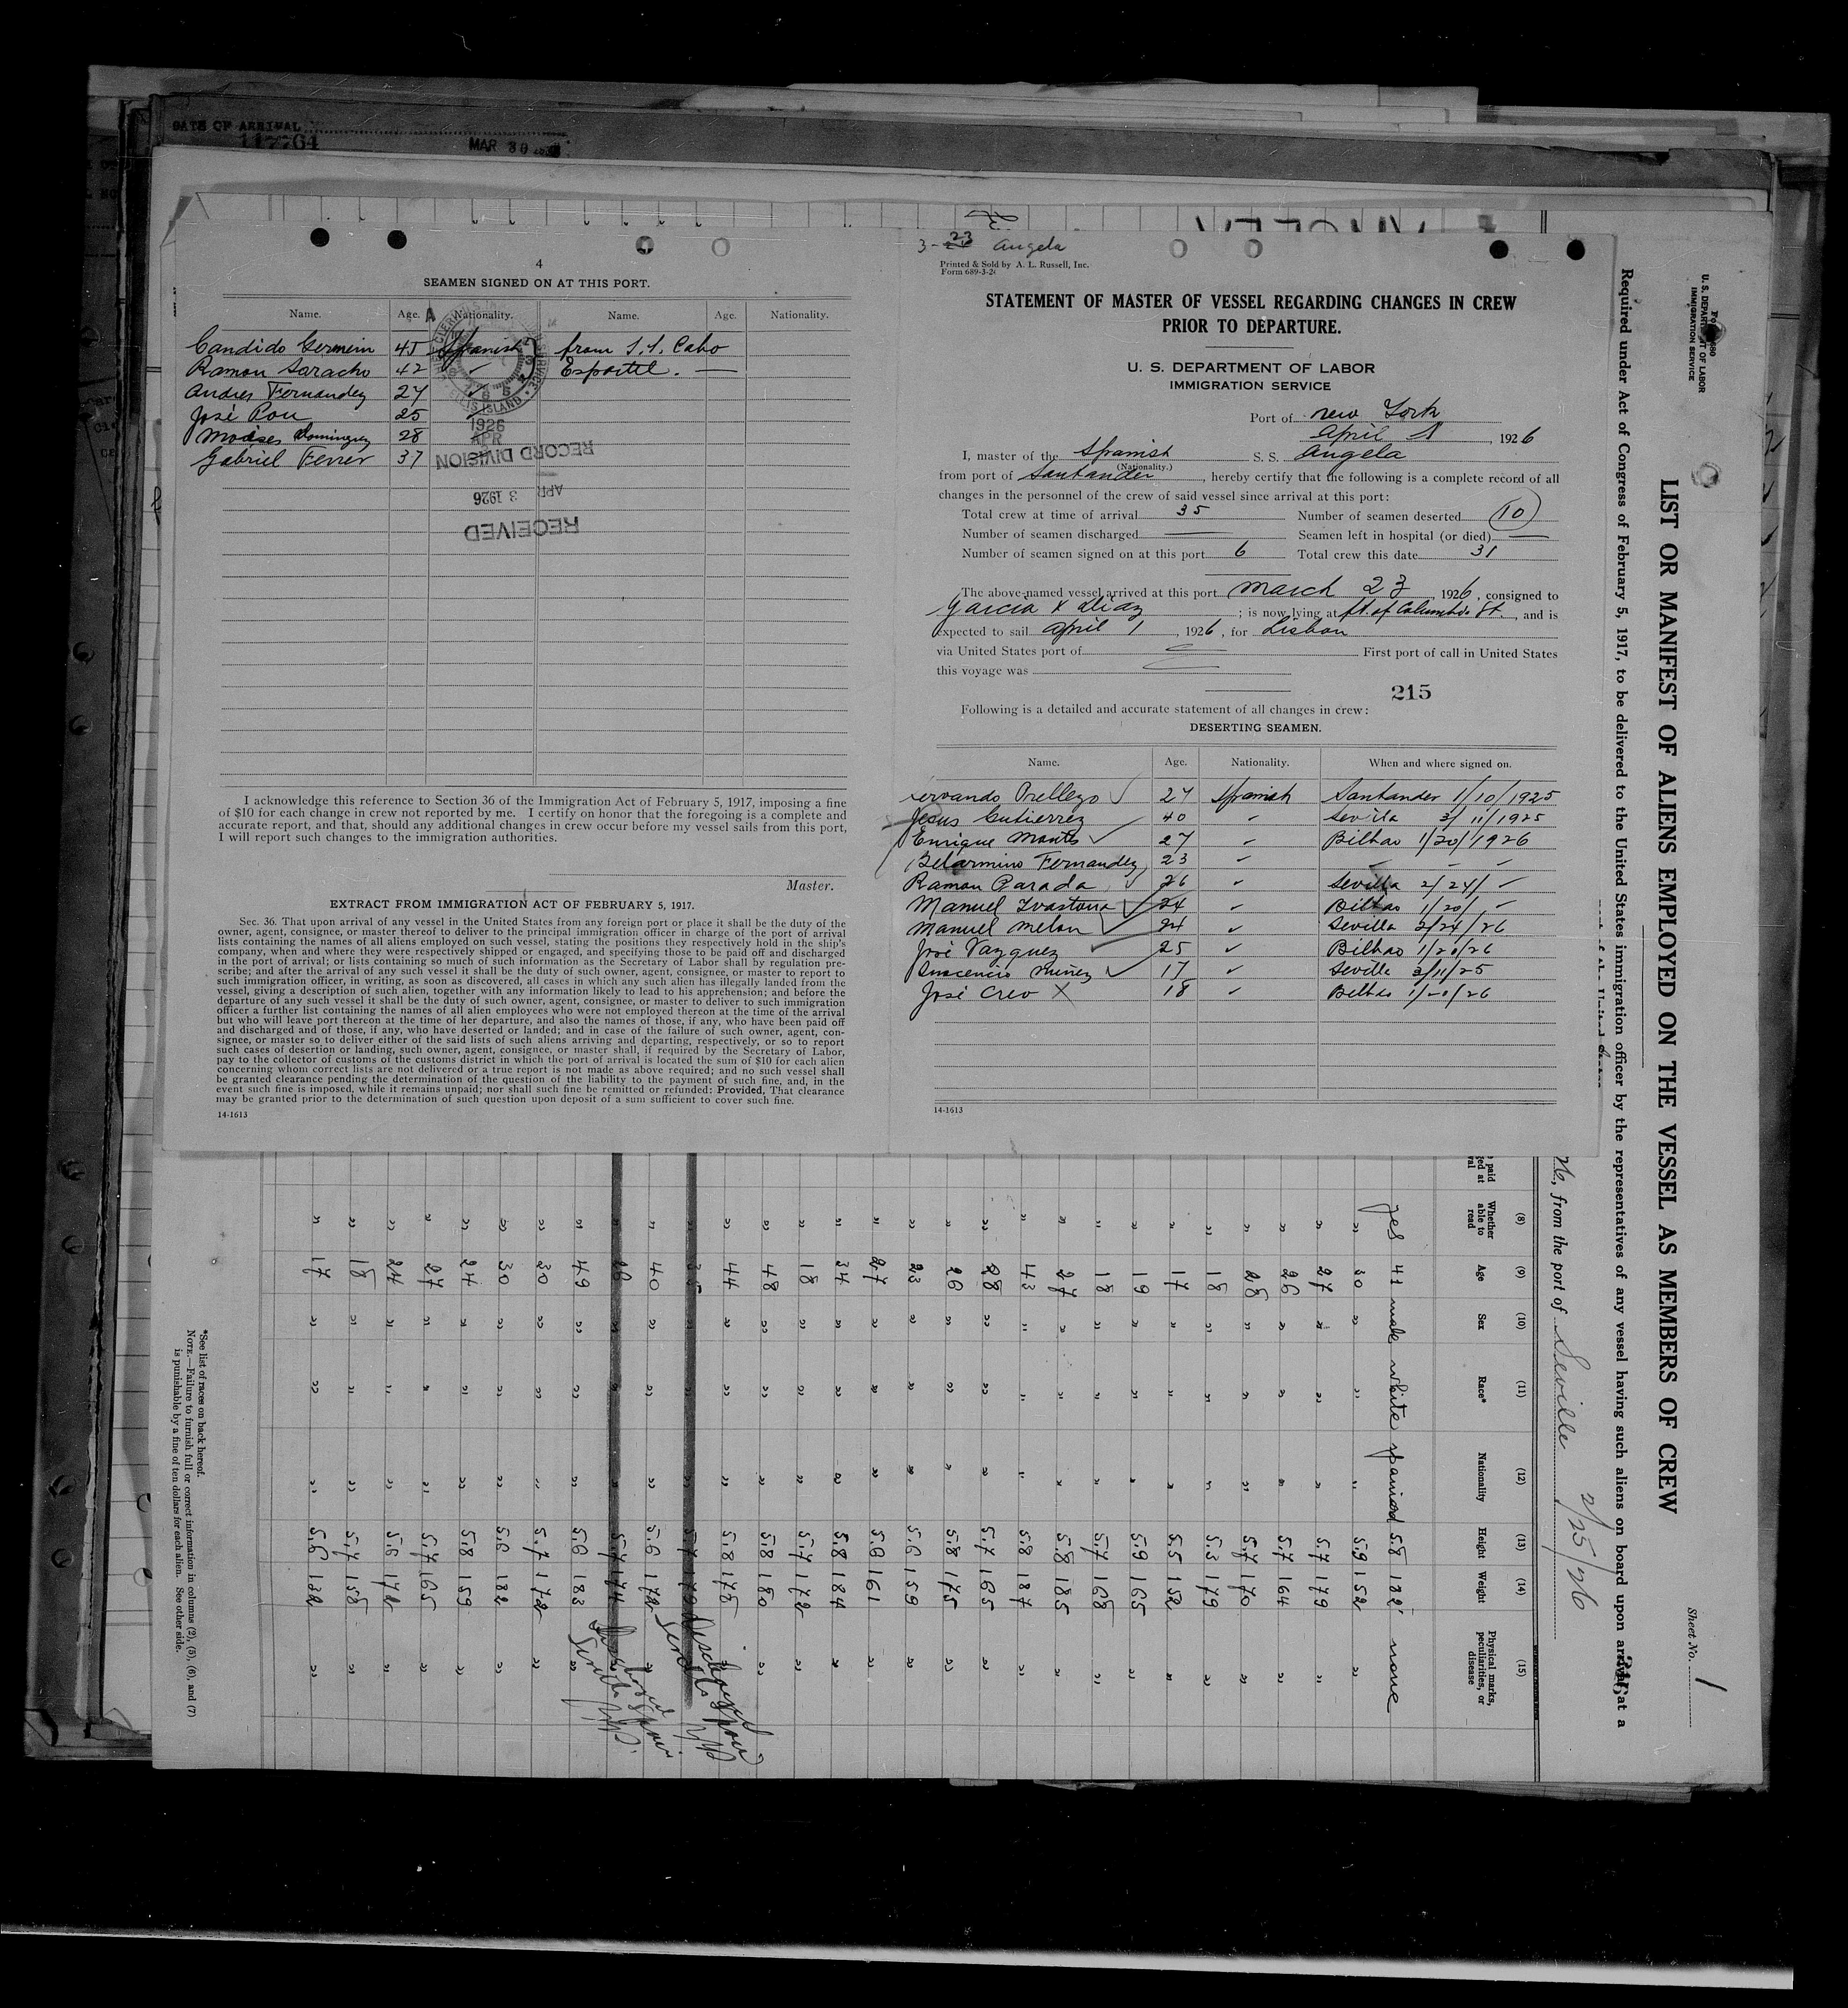 DATE OF ARRIVAL
117764
MAR 30
4
SEAMEN SIGNED ON AT THIS PORT.
Name. Age. Nationality. Name. Age. Nationality.
Candido Germein 45 Spanish from S.S. Cabo
Ramon Saracho 42 " Espartel. —
Andres Fernandez 27
José Pou 25
Moises Dominguez 28
Gabriel Ferrer 37
ELLIS ISLAND
1926
APR
RECORD DIVISION
APR 3 1926
RECEIVED
I acknowledge this reference to Section 36 of the Immigration Act of February 5, 1917, imposing a fine
of $10 for each change in crew not reported by me. I certify on honor that the foregoing is a complete and
accurate report, and that, should any additional changes in crew occur before my vessel sails from this port,
I will report such changes to the immigration authorities.
Master.
EXTRACT FROM IMMIGRATION ACT OF FEBRUARY 5, 1917.
Sec. 36. That upon arrival of any vessel in the United States from any foreign port or place it shall be the duty of the
owner, agent, consignee, or master thereof to deliver to the principal immigration officer in charge of the port of arrival
lists containing the names of all aliens employed on such vessel, stating the positions they respectively hold in the ship's
company, when and where they were respectively shipped or engaged, and specifying those to be paid off and discharged
in the port of arrival; or lists containing so much of such information as the Secretary of Labor shall by regulation pre-
scribe; and after the arrival of any such vessel it shall be the duty of such owner, agent, consignee, or master to report to
such immigration officer, in writing, as soon as discovered, all cases in which any such alien has illegally landed from the
vessel, giving a description of such alien, together with any information likely to lead to his apprehension; and before the
departure of any such vessel it shall be the duty of such owner, agent, consignee, or master to deliver to such immigration
officer a further list containing the names of all alien employees who were not employed thereon at the time of the arrival
but who will leave port thereon at the time of her departure, and also the names of those, if any, who have been paid off
and discharged and of those, if any, who have deserted or landed; and in case of the failure of such owner, agent, con-
signee, or master so to deliver either of the said lists of such aliens arriving and departing, respectively, or so to report
such cases of desertion or landing, such owner, agent, consignee, or master shall, if required by the Secretary of Labor,
pay to the collector of customs of the customs district in which the port of arrival is located the sum of $10 for each alien
concerning whom correct lists are not delivered or a true report is not made as above required; and no such vessel shall
be granted clearance pending the determination of the question of the liability to the payment of such fine, and, in the
event such fine is imposed, while it remains unpaid; nor shall such fine be remitted or refunded: Provided, That clearance
may be granted prior to the determination of such question upon deposit of a sum sufficient to cover such fine.
14-1613
3-23 Angela
Printed & Sold by A. L. Russell, Inc.
Form 689-3-26
STATEMENT OF MASTER OF VESSEL REGARDING CHANGES IN CREW
PRIOR TO DEPARTURE.
U. S. DEPARTMENT OF LABOR
IMMIGRATION SERVICE
Port of New York
April 1, 1926
I, master of the Spanish S. S. Angela
(Nationality.)
from port of Santander, hereby certify that the following is a complete record of all
changes in the personnel of the crew of said vessel since arrival at this port:
Total crew at time of arrival 35 Number of seamen deserted 10
Number of seamen discharged — Seamen left in hospital (or died) —
Number of seamen signed on at this port 6 Total crew this date 31
The above-named vessel arrived at this port March 23, 1926, consigned to
Garcia & Diaz; is now lying at ft. of Columbia St., and is
expected to sail April 1, 1926, for Lisbon
via United States port of First port of call in United States
this voyage was
215
Following is a detailed and accurate statement of all changes in crew:
DESERTING SEAMEN.
Name. Age. Nationality. When and where signed on.
Servando Prellezo 27 Spanish Santander 1/10/1925
Jesus Gutierrez 40 " Sevilla 3/11/1925
Enrique Montes 27 " Bilbao 1/20/1926
Belarmino Fernandez 23 " " " "
Ramon Parada 26 " Sevilla 2/24/ "
Manuel 24 " Bilbao 1/20/ "
Manuel Melon 24 " Sevilla 2/24/26
José Vazquez 25 " Bilbao 1/20/26
Inocencio Nuñez 17 " Sevilla 3/11/25
José Creo X 18 " Bilbao 1/20/26
14-1613
U. S. DEPARTMENT OF LABOR
IMMIGRATION SERVICE
LIST OR MANIFEST OF ALIENS EMPLOYED ON THE VESSEL AS MEMBERS OF CREW
Sheet No. 1
Required under Act of Congress of February 5, 1917, to be delivered to the United States immigration officer by the representatives of any vessel having such aliens on board upon arrival at a
26, from the port of Seville 2/25/26
(8) (9) (10) (11) (12) (13) (14) (15)
Whether able to read Age Sex Race* Nationality Height Weight Physical marks, peculiarities, or disease
yes 41 male white Spaniard 5.8 132 none
" 30 " " " 5.9 152 "
" 27 " " " 5.7 179 "
" 26 " " " 5.7 164 "
" 28 " " " 5.7 170 "
" 18 " " " 5.3 179 "
" 17 " " " 5.5 152 "
" 19 " " " 5.9 165 "
" 18 " " " 5.7 168 "
" 27 " " " 5.8 185 "
" 43 " " " 5.8 187 "
" 28 " " " 5.7 165 "
" 26 " " " 5.8 175 "
" 23 " " " 5.6 159 "
" 27 " " " 5.6 161 "
" 34 " " " 5.8 184 "
" 18 " " " 5.7 172 "
" 48 " " " 5.8 180 "
" 44 " " " 5.8 178 "
" 40 " " " 5.6 172 "
" 49 " " " 5.6 183 "
" 30 " " " 5.7 172 "
" 30 " " " 5.6 182 "
" 24 " " " 5.8 159 "
" 27 " " " 5.7 165 "
" 24 " " " 5.6 172 "
" 18 " " " 5.7 158 "
" 17 " " " 5.6 132 "
*See list of races on back hereof.
NOTE.—Failure to furnish full or correct information in columns (2), (5), (6), and (7)
is punishable by a fine of ten dollars for each alien. See other side.